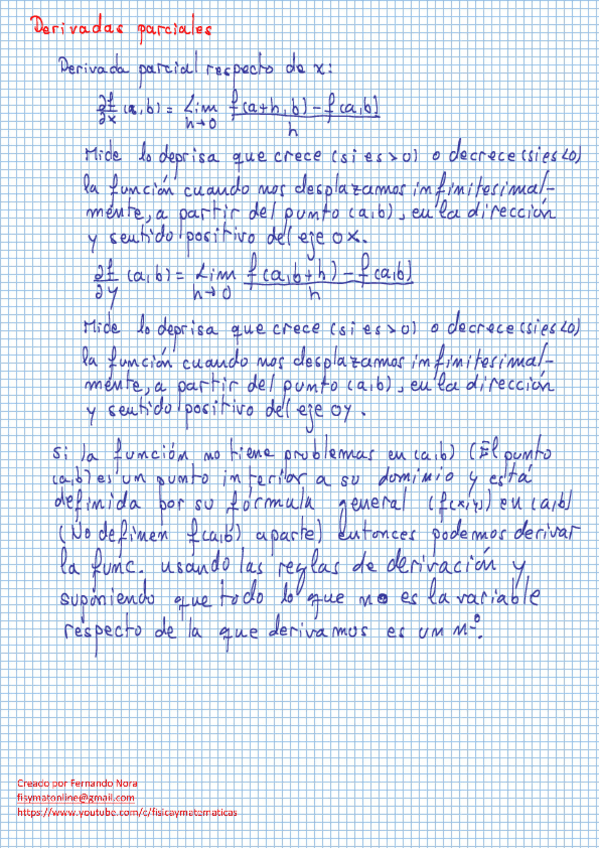 Derivadas parciales
Derivada parcial respecto de x:
∂f/∂x (a,b) = Lim h→0 (f(a+h,b) - f(a,b))/h
Mide lo deprisa que crece (si es >0) o decrece (si es <0)
la función cuando nos desplazamos infinitesimal-
mente, a partir del punto (a,b), en la dirección
y sentido positivo del eje OX.
∂f/∂y (a,b) = Lim h→0 (f(a,b+h) - f(a,b))/h
Mide lo deprisa que crece (si es >0) o decrece (si es <0)
la función cuando nos desplazamos infinitesimal-
mente, a partir del punto (a,b), en la dirección
y sentido positivo del eje OY.
Si la función no tiene problemas en (a,b) (El punto
(a,b) es un punto interior a su dominio y está
definida por su fórmula general (f(x,y)) en (a,b)
(No definen f(a,b) aparte) entonces podemos derivar
la func. usando las reglas de derivación y
suponiendo que todo lo que no es la variable
respecto de la que derivamos es un nº.
Creado por Fernando Nora
fisymatonline@gmail.com
https://www.youtube.com/c/fisicaymatematicas